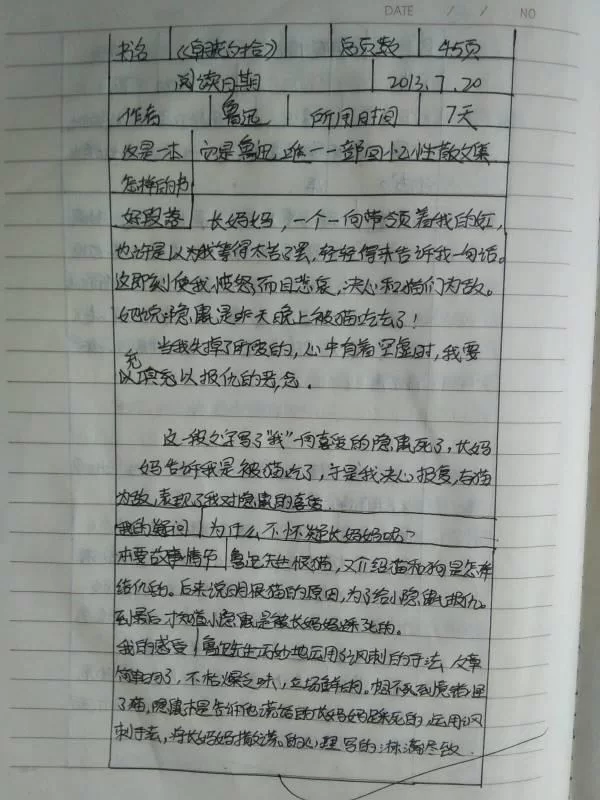 DATE / / NO
书名 《朝花夕拾》 总页数 45页
阅读日期 2013.7.20
作者 鲁迅 所用时间 7天
这是一本 它是鲁迅唯一一部回忆性散文集
怎样的书
好段落 长妈妈,一个一向带领着我的女工,
也许是以为我等得太苦了罢,轻轻得来告诉我一句话。
这即刻使我愤怒而且悲哀,决心和猫们为敌。
她说:隐鼠是昨天晚上被猫吃去了!
当我失掉了所爱的,心中有着空虚时,我要
充
填充以报仇的恶念。
这一段文字写了“我”一向喜爱的隐鼠死了,长妈
妈告诉我是被猫吃了,于是我决心报复,与猫
为敌,表现了我对隐鼠的喜爱.
我的疑问 为什么不怀疑长妈妈呢?
本要故事情节 鲁迅先生恨猫,又介绍猫和狗是怎样
结仇的。后来说明恨猫的原因,为了给小隐鼠报仇。
到最后才知道小隐鼠是被长妈妈踩死的。
我的感受 鲁迅先生巧妙地运用讽刺的手法 文章
简单明了,不枯燥乏味,立场鲜明。
了猫,隐鼠是告诉他谎话的长妈妈踩死的,运用讽
刺手法,将长妈妈撒谎的心理写的淋漓尽致.